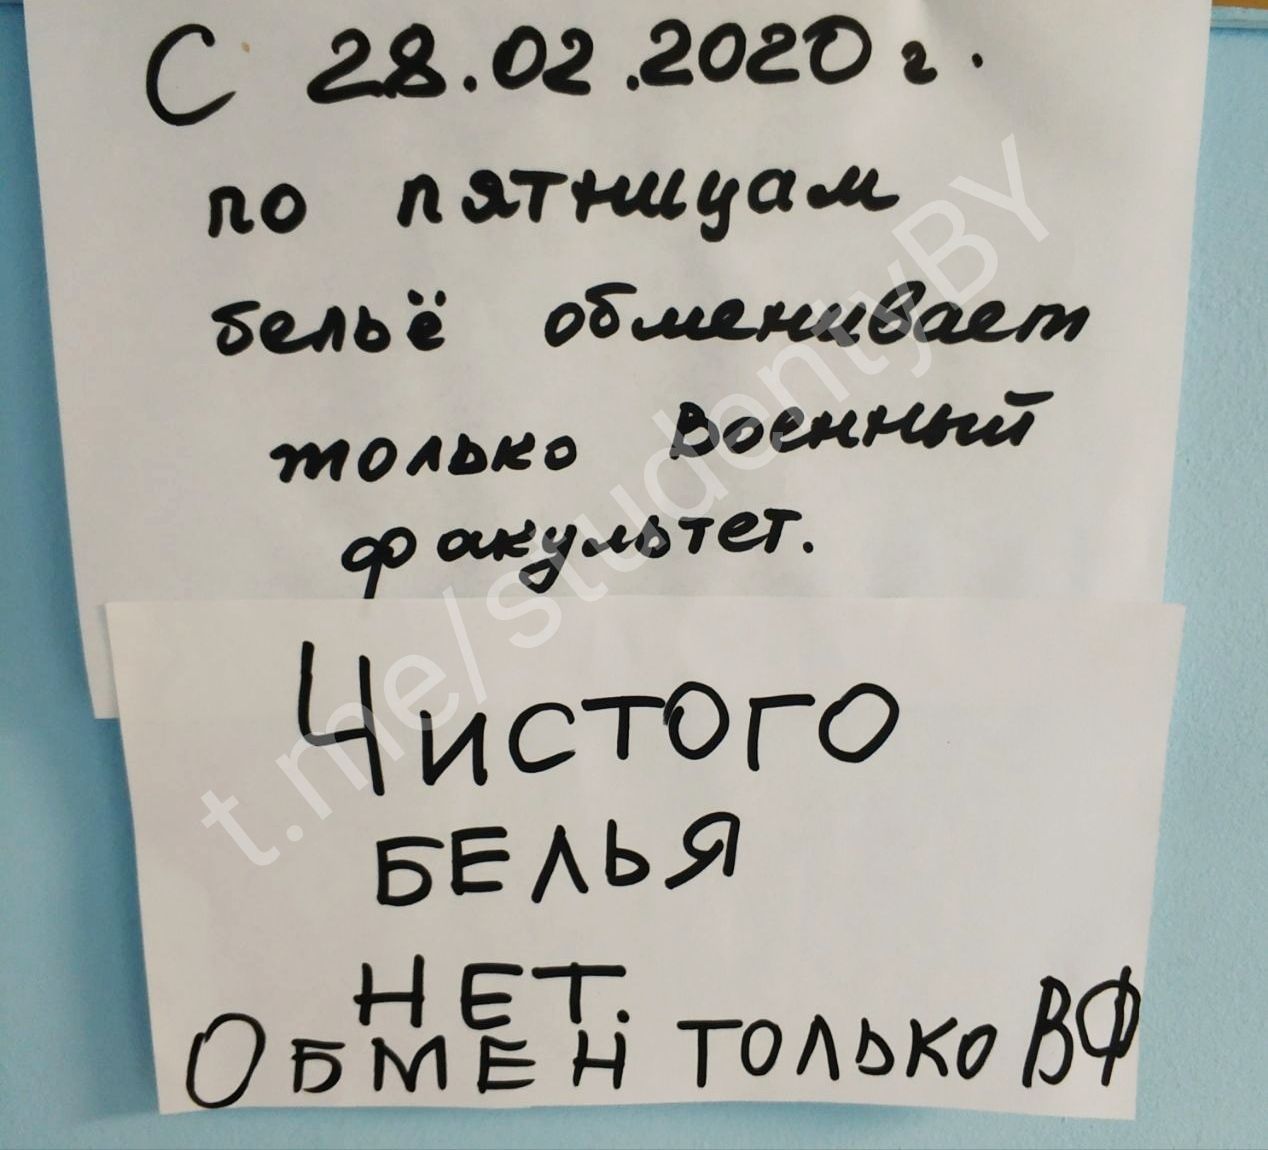 С 28.02.2020 г.
по пятницам
бельё обменивает
только Военный
факультет.
Чистого
белья
нет.
Обмен только ВФ
t.me/studentyBY